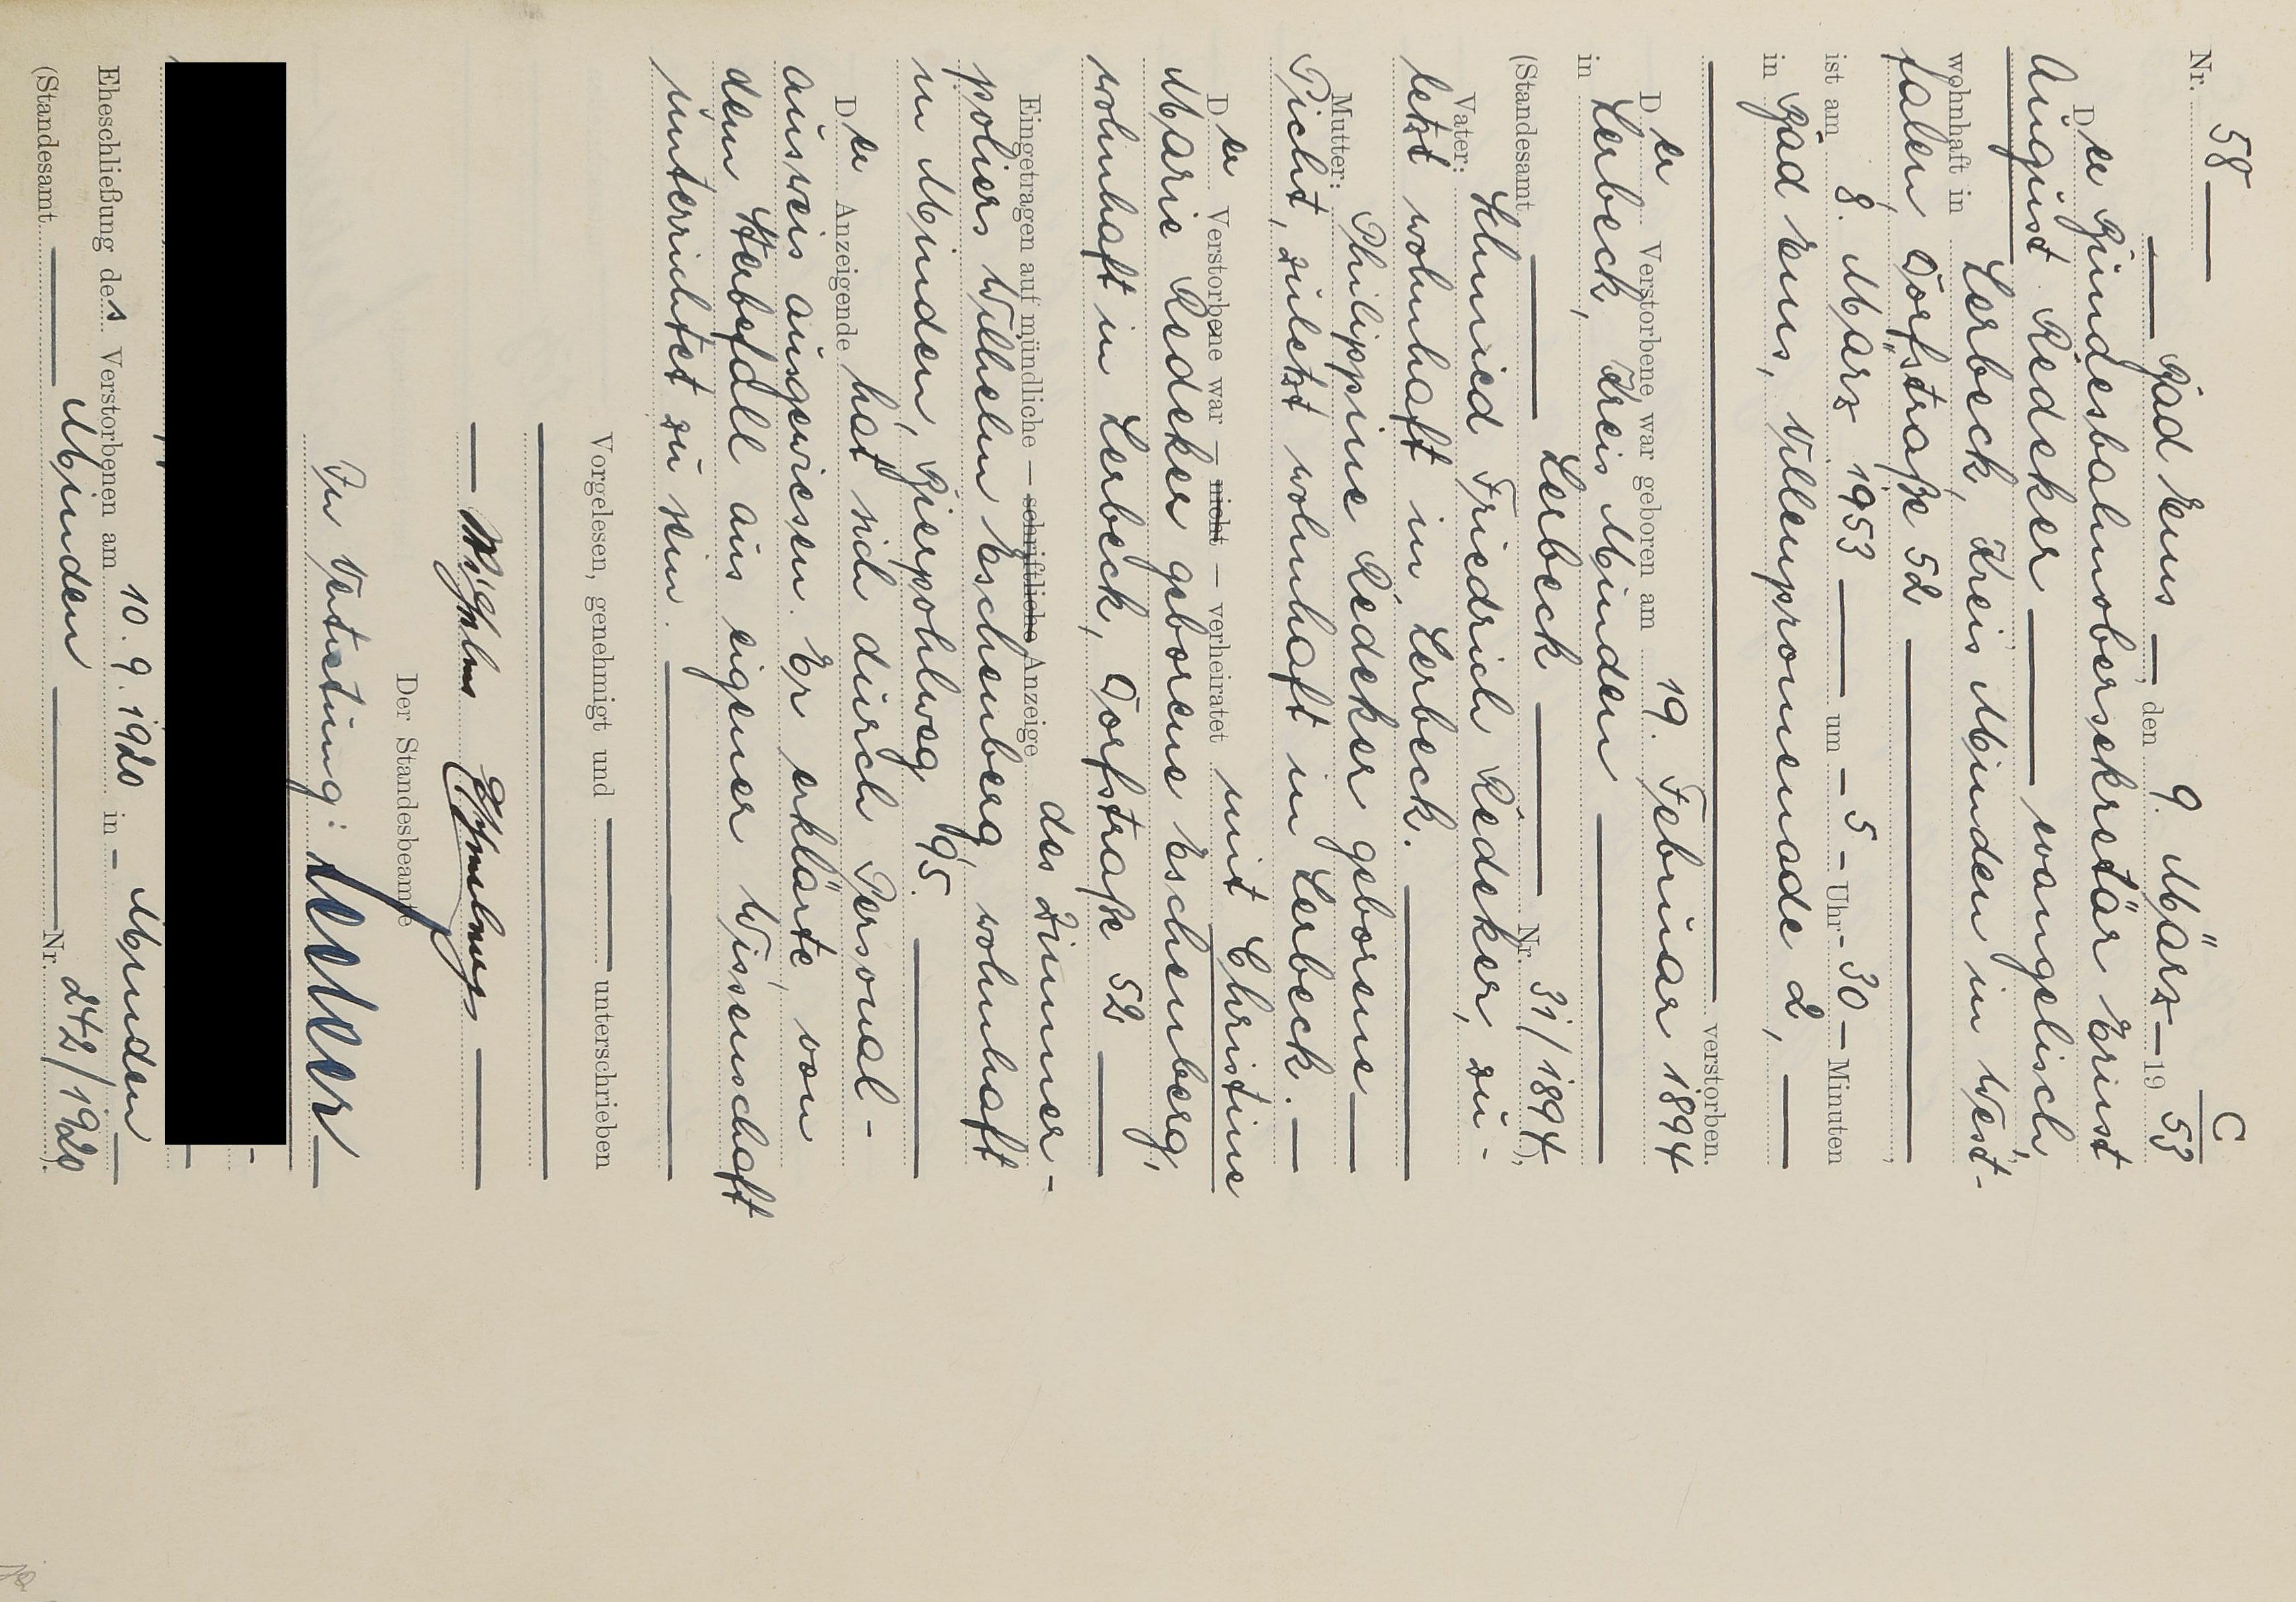 C
Nr. 58
Bad Ems, den 9. März 1953
Der Bundesbahnobersekretär Ernst
August Redeker evangelisch,
wohnhaft in Lerbeck, Kreis Minden in West-
falen, Dorfstraße 52,
ist am 8. März 1953 um - 5 - Uhr - 30 - Minuten
in Bad Ems, Villenpromenade 2,
verstorben.
Der Verstorbene war geboren am 19. Februar 1894
in Lerbeck, Kreis Minden
(Standesamt Lerbeck Nr. 31/1894),
Vater: Schmied Friedrich Redeker, zu-
letzt wohnhaft in Lerbeck.
Mutter: Philippine Redeker geborene
Picht, zuletzt wohnhaft in Lerbeck.
Der Verstorbene war — nicht — verheiratet mit Christine
Marie Redeker geborene Eschenberg,
wohnhaft in Lerbeck, Dorfstraße 52
Eingetragen auf mündliche — schriftliche Anzeige des Zimmer-
poliers Wilhelm Eschenberg wohnhaft
in Minden, Bierpohlweg 95.
Der Anzeigende hat sich durch Personal-
ausweis ausgewiesen. Er erklärte, von
dem Sterbefall aus eigener Wissenschaft
unterrichtet zu sein.
Vorgelesen, genehmigt und unterschrieben
Wilhelm
Der Standesbeamte
In Vertretung:
Eheschließung des Verstorbenen am 10. 9. 1920 in - Minden
(Standesamt Minden Nr. 242/1920).